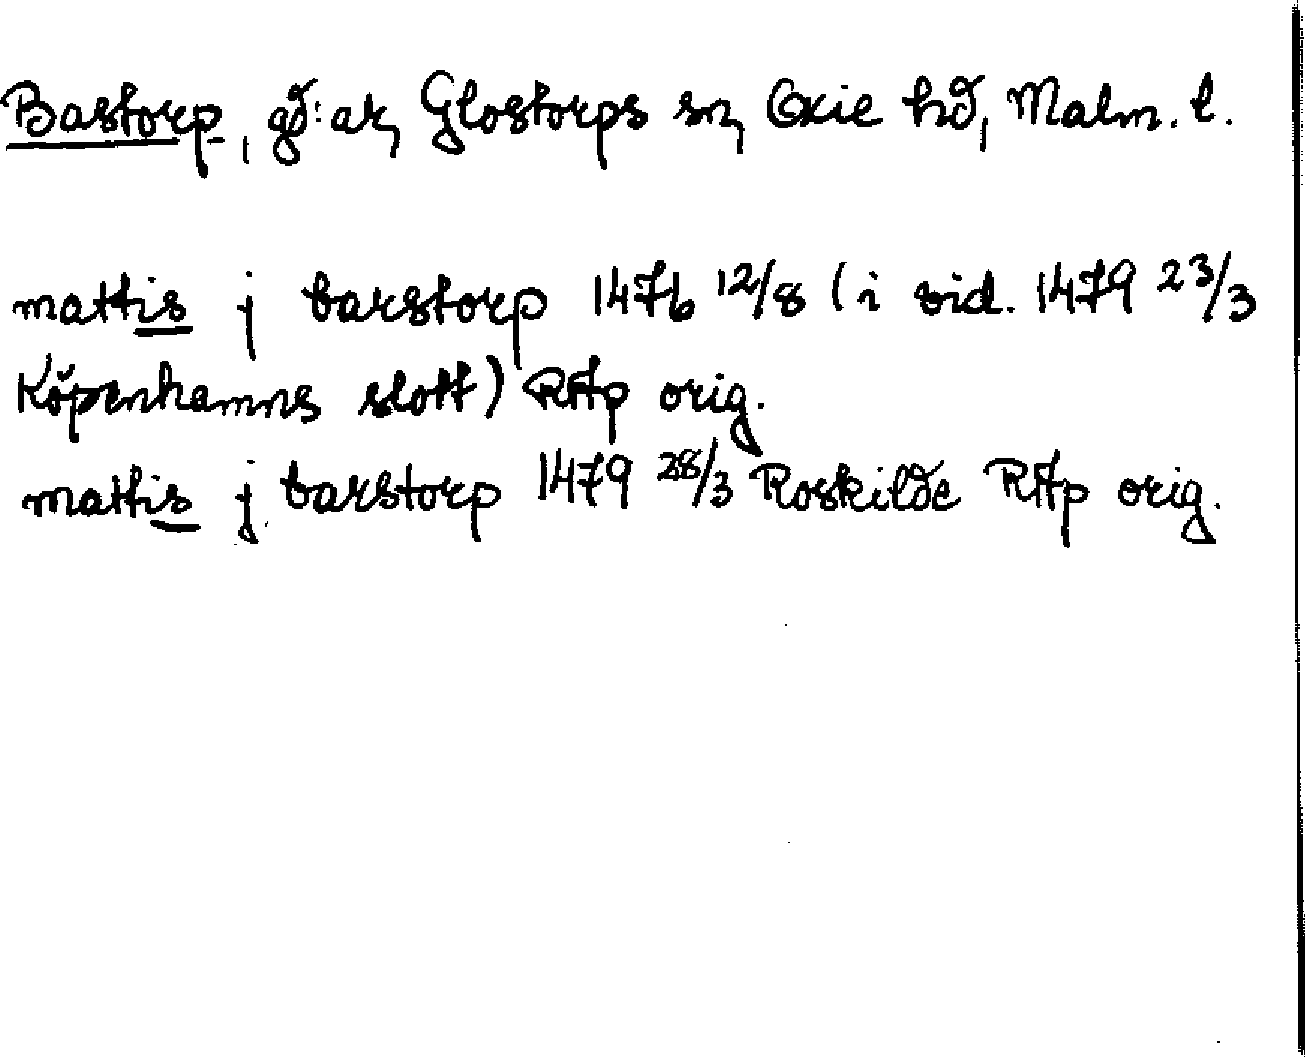 Bastorp, gd:ar, Glostorps sn, Oxie hd, Malm. l.
mattis j barstorp 1476 12/8 (i vid. 1479 23/3
Köpenhamns slott) RAp orig.
mattis j barstorp 1479 28/3 Roskilde RAp orig.